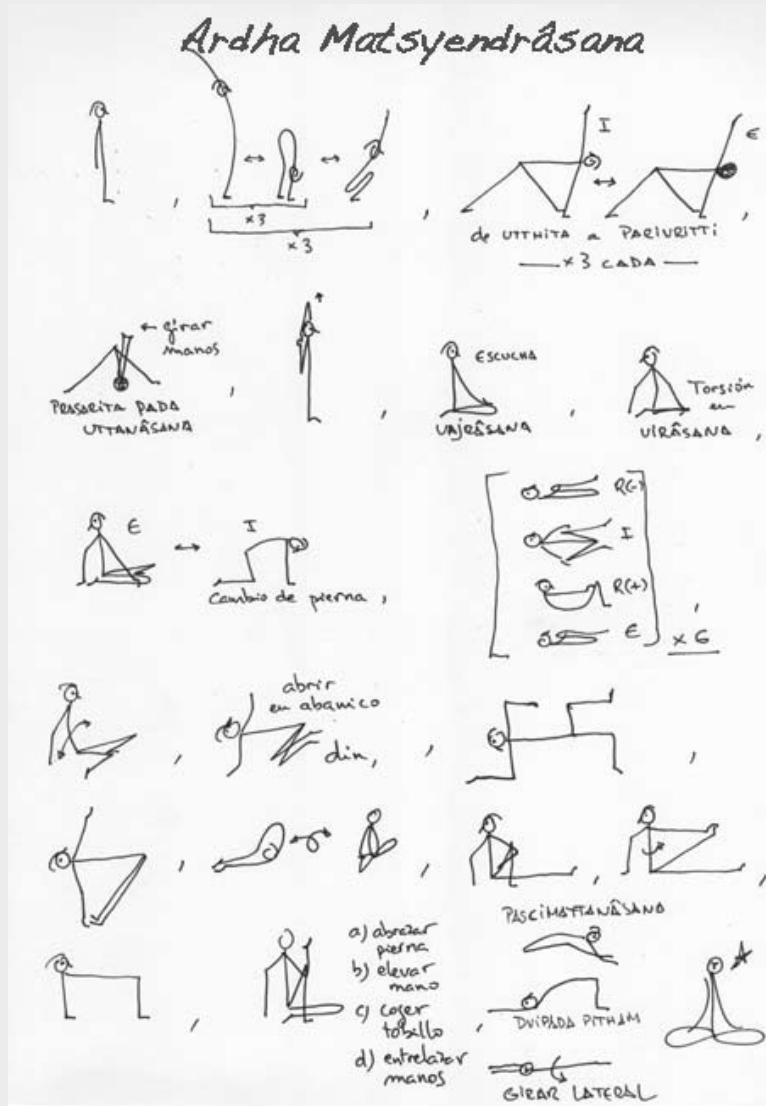 Ardha Matsyendrâsana
I
E
x3
x3
de UTTHITA a PARIVRITTI
x3 CADA
← girar
manos
PRASARITA PADA
UTTANÂSANA
ESCUCHA
VAJRÂSANA
Torsión
en
VIRÂSANA
E
I
Cambio de pierna
R(-)
I
R(+)
E
x 6
abrir
en abanico
din,
PASCIMATTANÂSANA
a) abrazar
pierna
b) elevar
mano
c) coger
tobillo
d) entrelazar
manos
DVIPADA PITHAM
GIRAR LATERAL